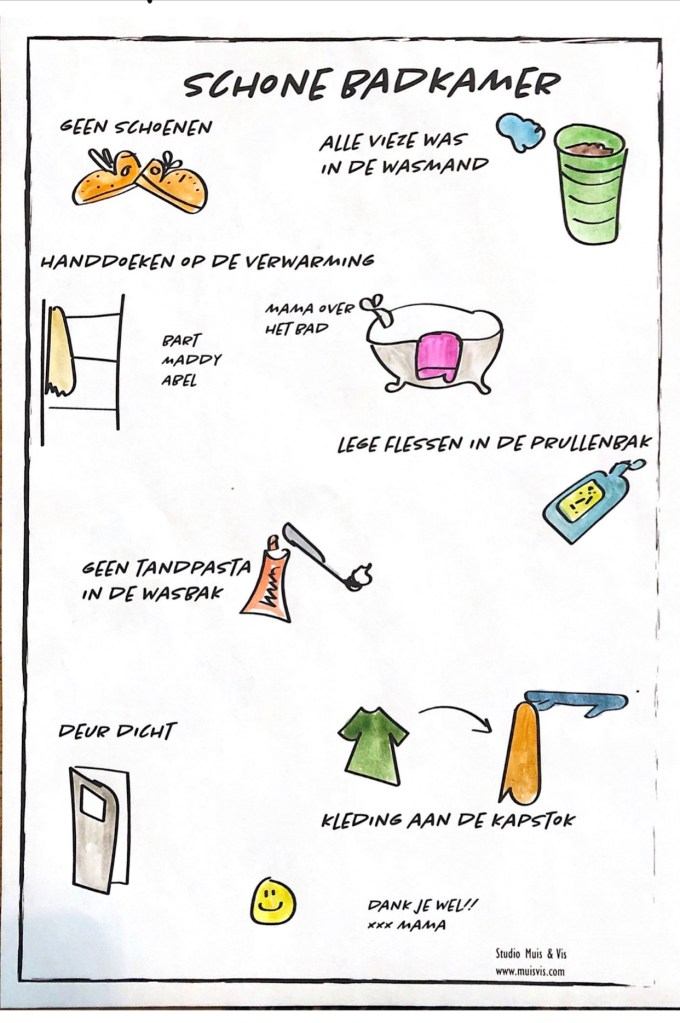 SCHONE BADKAMER
GEEN SCHOENEN
ALLE VIEZE WAS
IN DE WASMAND
HANDDOEKEN OP DE VERWARMING
MAMA OVER
HET BAD
BART
MADDY
ABEL
LEGE FLESSEN IN DE PRULLENBAK
GEEN TANDPASTA
IN DE WASBAK
DEUR DICHT
KLEDING AAN DE KAPSTOK
DANK JE WEL!!
xxx MAMA
Studio Muis & Vis
www.muisvis.com